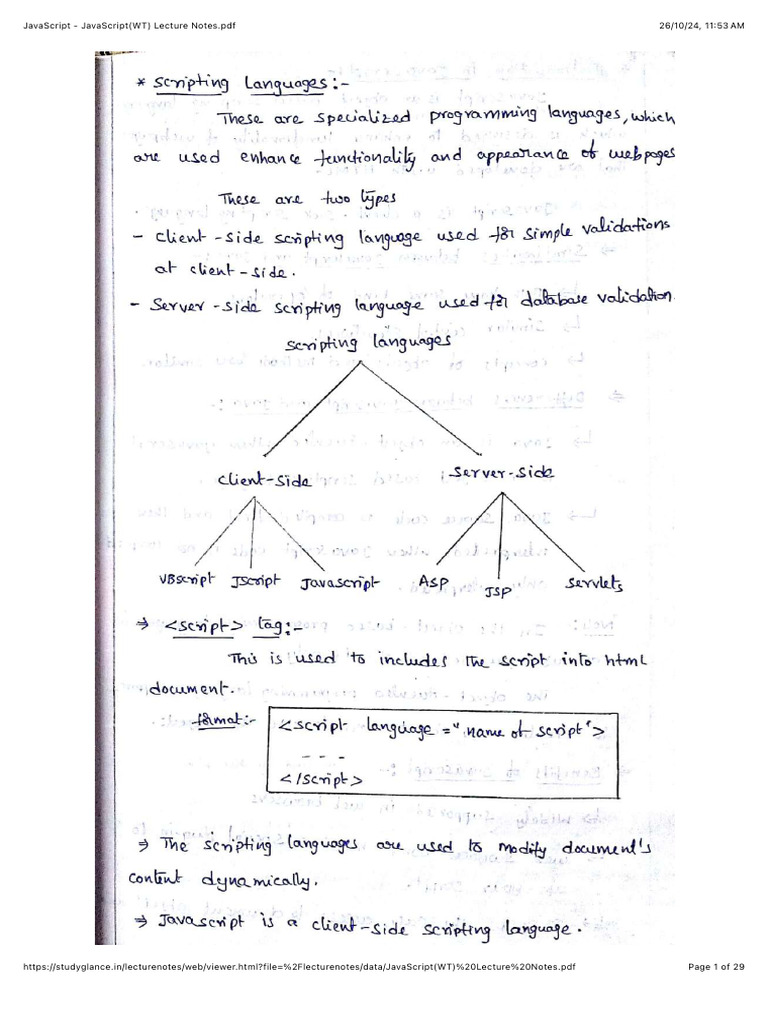 JavaScript - JavaScript(WT) Lecture Notes.pdf
26/10/24, 11:53 AM
* Scripting Languages:-
These are specialized programming languages, which
are used enhance functionality and appearance of webpages
These are two types
- client-side scripting language used for simple validations
at client-side.
- Server-side scripting language used for database validation.
scripting languages
client-side
Server-side
VBscript JScript Javascript ASP JSP Servlets
⇒ <script> tag:-
This is used to includes the script into html
document.
format:-
<script language="name of script">
- - -
</script>
⇒ The scripting languages are used to modify document's
content dynamically.
⇒ Javascript is a client-side scripting language.
https://studyglance.in/lecturenotes/web/viewer.html?file=%2Flecturenotes/data/JavaScript(WT)%20Lecture%20Notes.pdf
Page 1 of 29